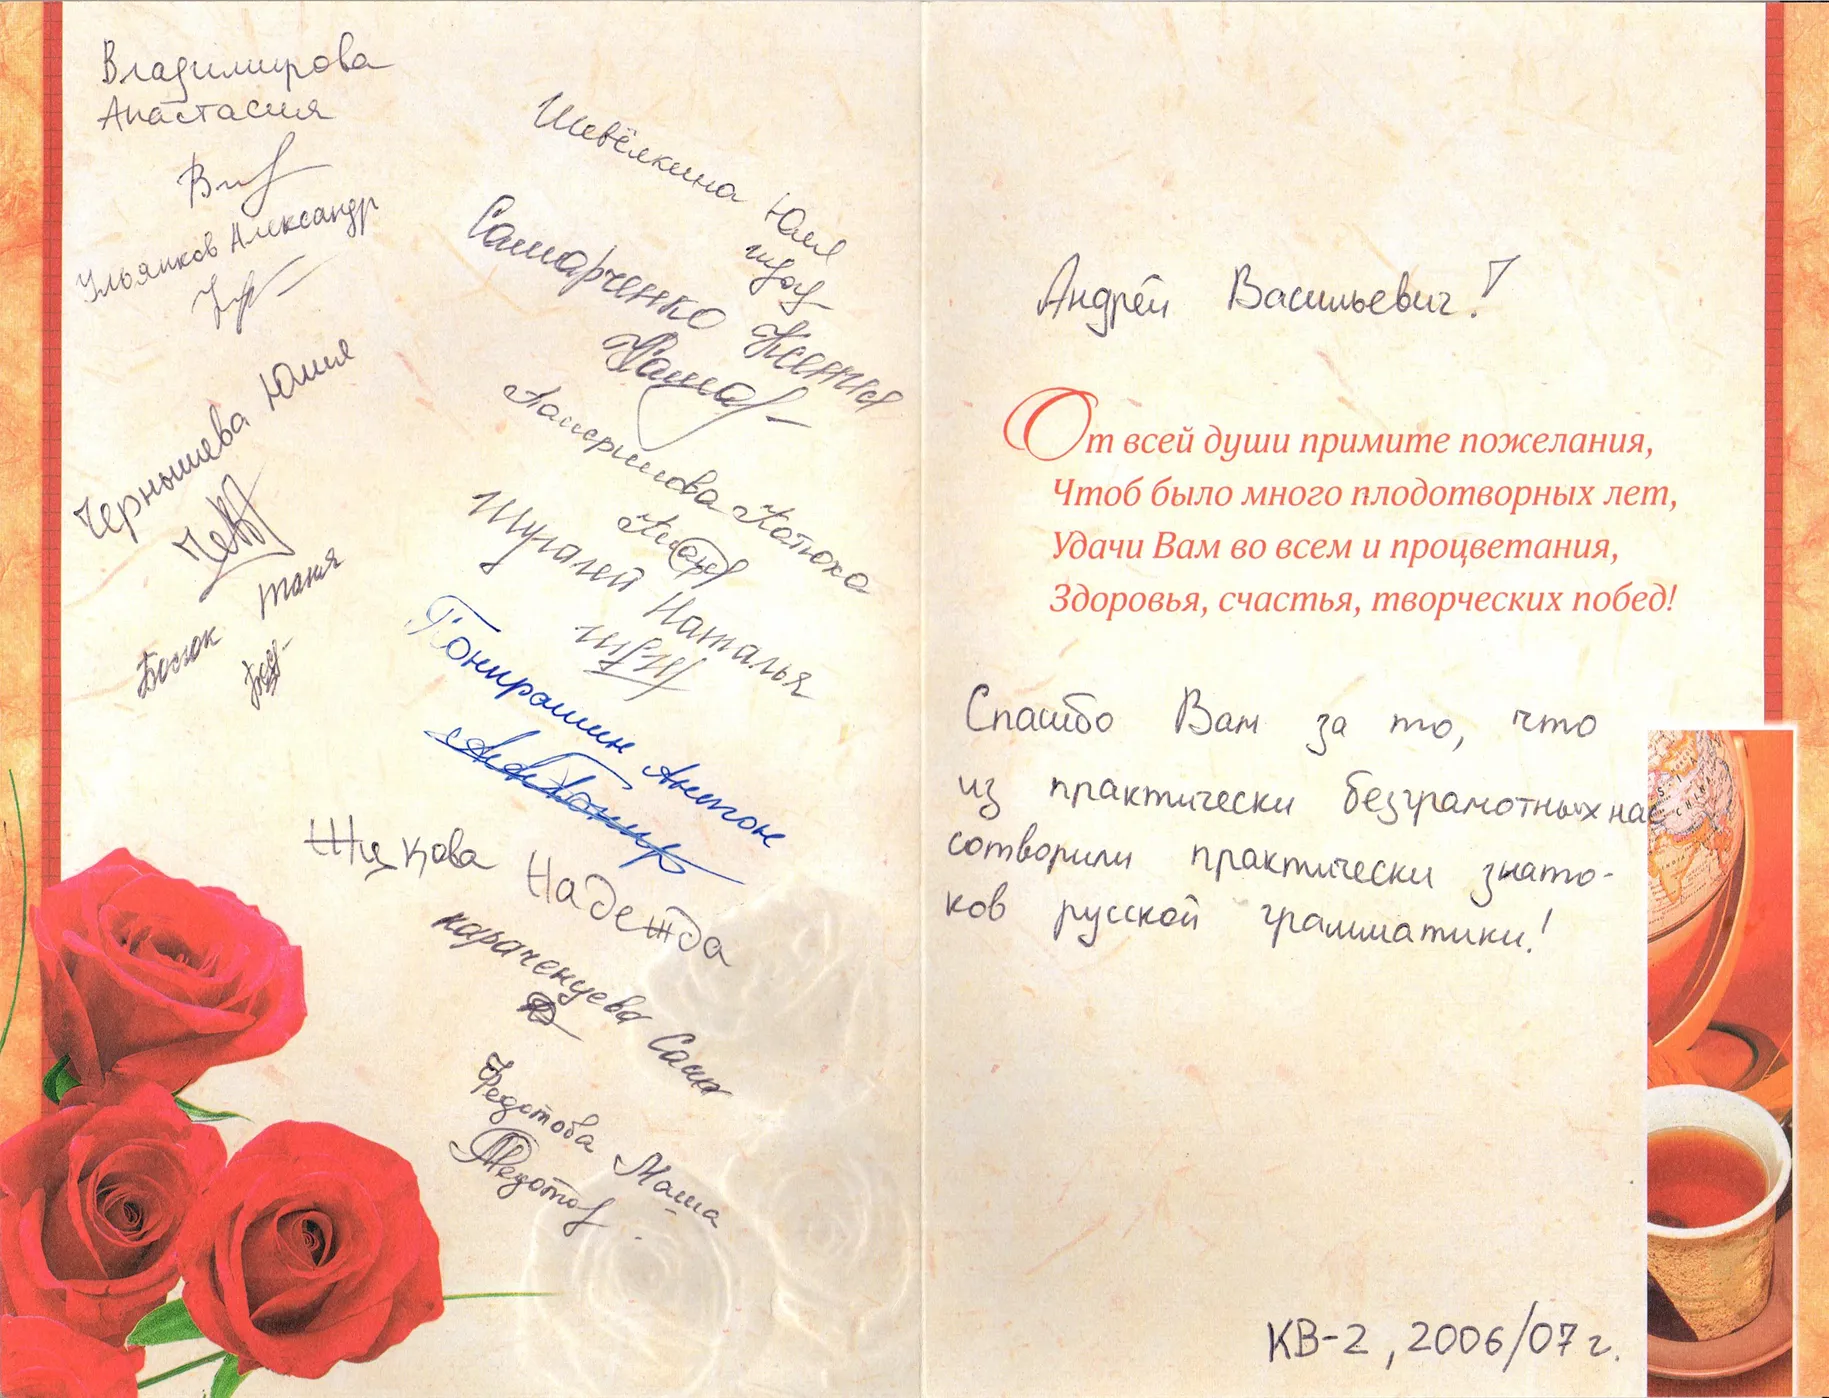 Владимирова
Анастасия
Ульянков Александр
Чернышева Юлия
Босюк Таня
Шевёлкина Юля
Самарченко Ксения
Катюха
Шугалей Наталья
Понирашин Антон
Жукова Надежда
Караченцева Саша
Федотова Маша
Андрей Васильевич!
От всей души примите пожелания,
Чтоб было много плодотворных лет,
Удачи Вам во всем и процветания,
Здоровья, счастья, творческих побед!
Спасибо Вам за то, что
из практически безграмотных нас
сотворили практически знато-
ков русской грамматики!
КВ-2, 2006/07 г.